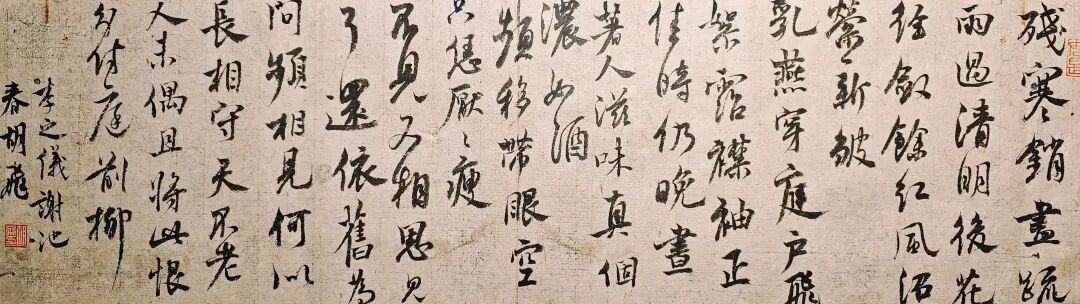 殘寒銷盡疏
雨過清明後花
徑斂餘紅風沼
縈新皺
乳燕穿庭户飛
絮霑襟袖正
佳時仍晚晝
著人滋味真個
濃如酒
頻移帶眼空
只恁厭〻瘦
不見又相思見
了還依舊為
問頻相見何似
長相守天不老
人未偶且將此恨
分付庭前柳
李之儀謝池
春胡